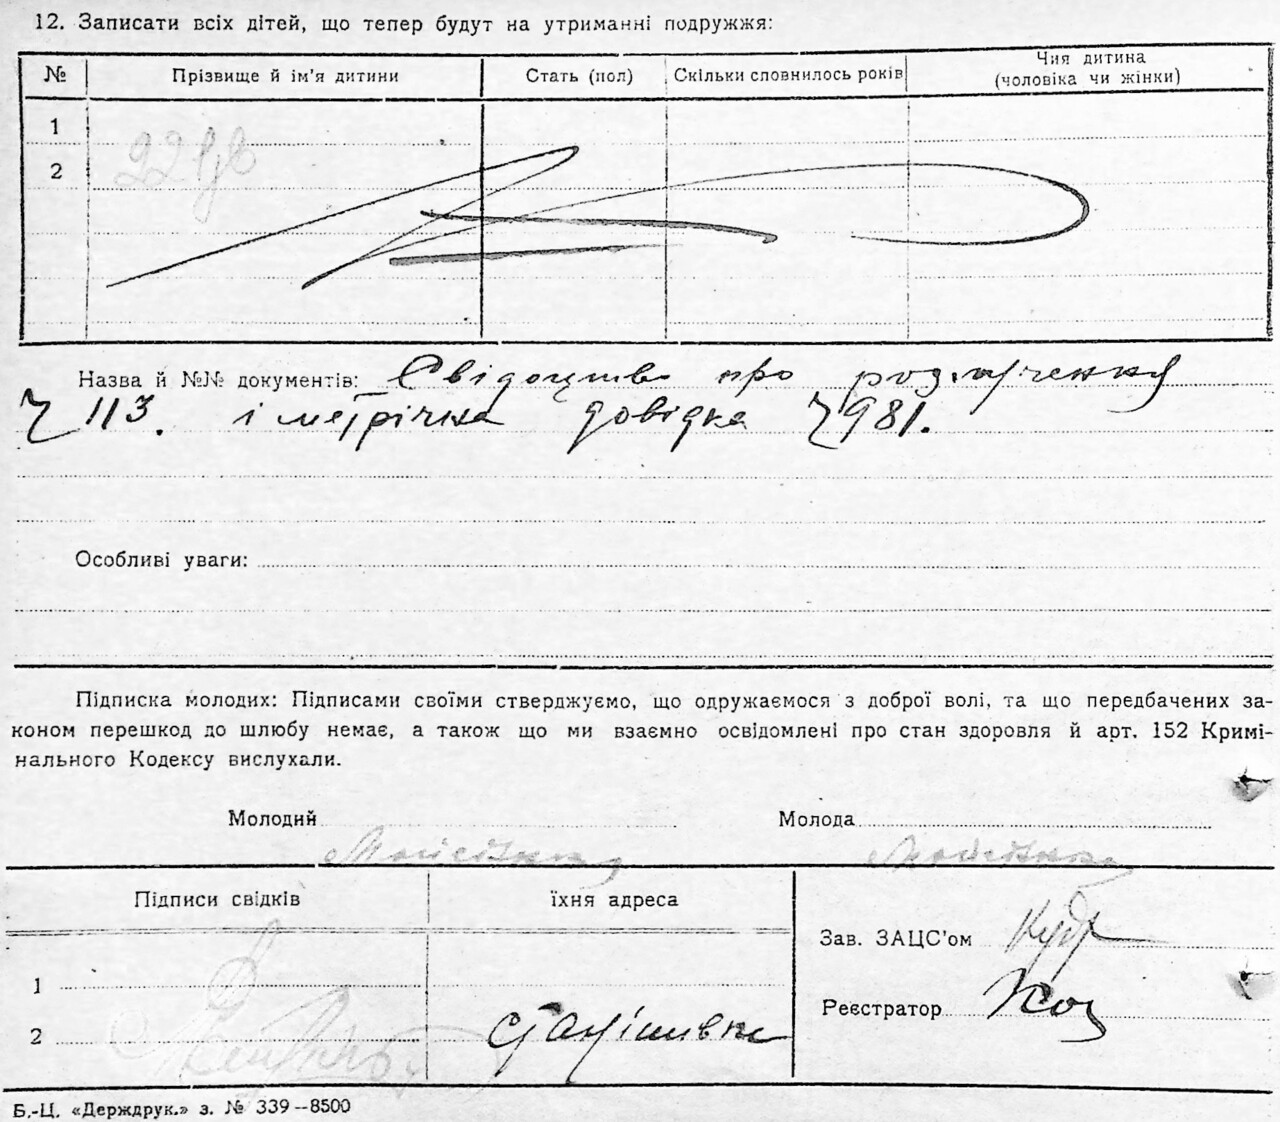 12. Записати всіх дітей, що тепер будут на утриманні подружжя:
№ Прізвище й ім'я дитини Стать (пол) Скільки сповнилось років Чия дитина (чоловіка чи жінки)
1
2
Назва й №№ документів: Свідоцтво про розлучення
Ч 113. і метрічна довідка Ч 981.
Особливі уваги:
Підписка молодих: Підписами своїми стверджуємо, що одружаємося з доброї волі, та що передбачених за-
коном перешкод до шлюбу немає, а також що ми взаємно освідомлені про стан здоровля й арт. 152 Кримі-
нального Кодексу вислухали.
Молодий Молода
Підписи свідків їхня адреса
Зав. ЗАЦС'ом
1
Реєстратор
2
Б.-Ц. «Держдрук.» з. № 339—8500